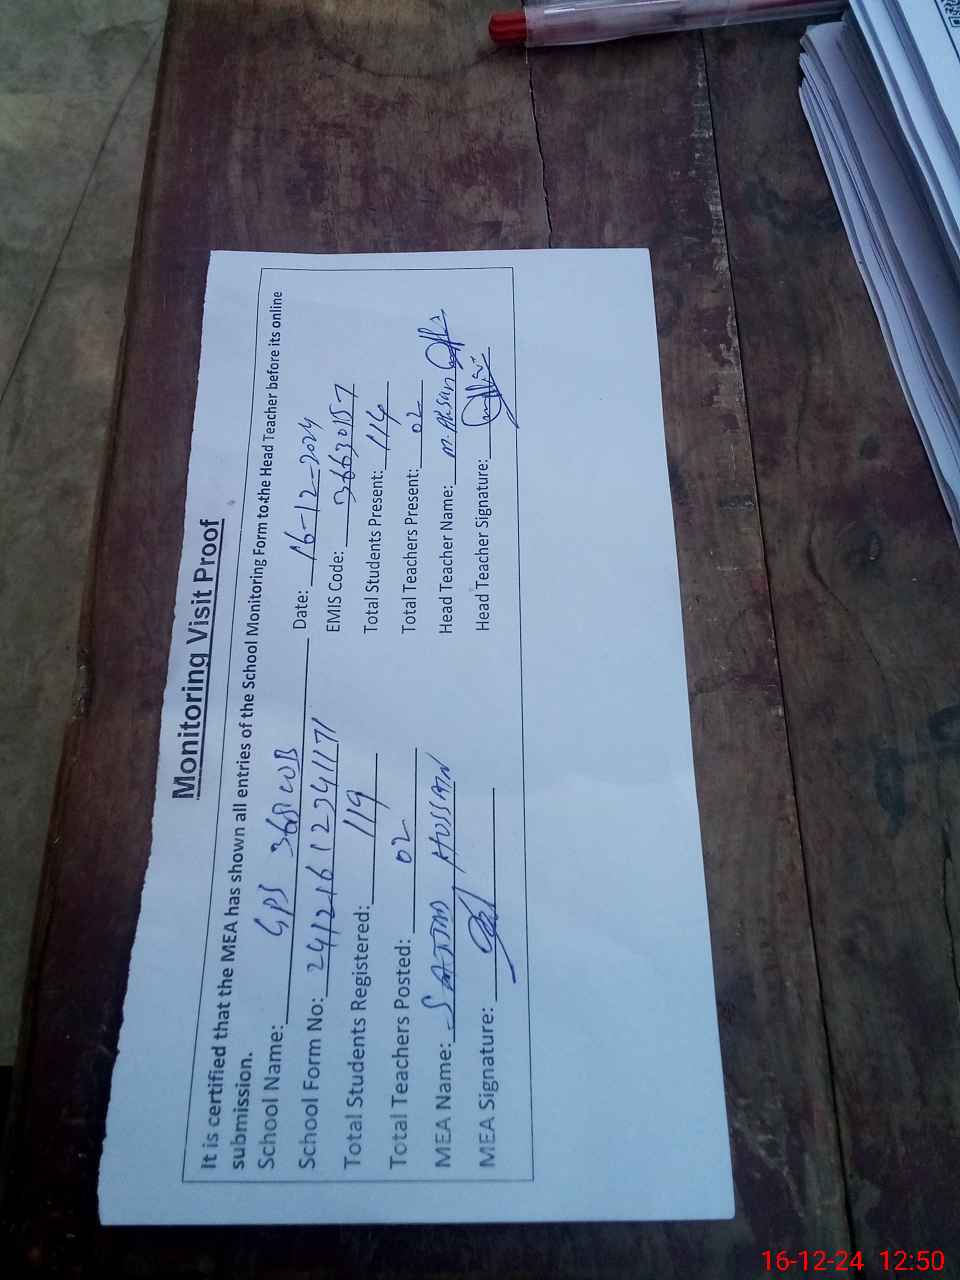 Monitoring Visit Proof
It is certified that the MEA has shown all entries of the School Monitoring Form to the Head Teacher before its online
submission.
School Name: GPS 368 WB Date: 16-12-2024
School Form No: 24121612341171 EMIS Code: 36630157
Total Students Registered: 119 Total Students Present: 114
Total Teachers Posted: 02 Total Teachers Present: 02
MEA Name: SAJJAD HUSSAIN Head Teacher Name: M. Ahsan
MEA Signature: Head Teacher Signature:
16-12-24 12:50